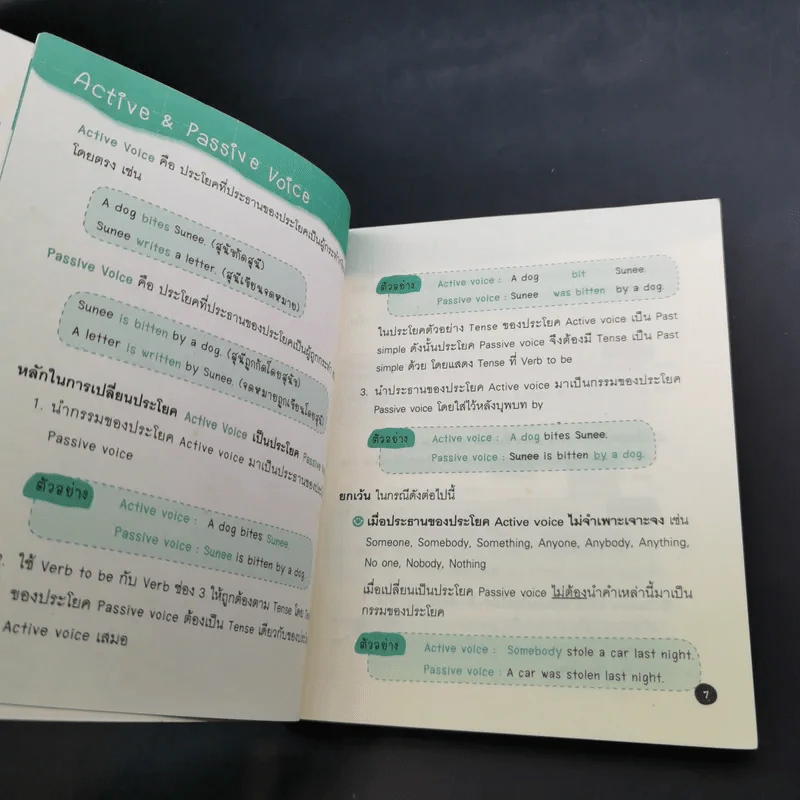 Active & Passive Voice
Active Voice คือ ประโยคที่ประธานของประโยคเป็นผู้กระทำ
โดยตรง เช่น
A dog bites Sunee. (สุนัขกัดสุนี)
Sunee writes a letter. (สุนีเขียนจดหมาย)
Passive Voice คือ ประโยคที่ประธานของประโยคเป็นผู้ถูกกระทำ
Sunee is bitten by a dog. (สุนีถูกกัดโดยสุนัข)
A letter is written by Sunee. (จดหมายถูกเขียนโดยสุนี)
หลักในการเปลี่ยนประโยค Active Voice เป็นประโยค Passive
1. นำกรรมของประโยค Active voice มาเป็นประธานของ
Passive voice
ตัวอย่าง
Active voice : A dog bites Sunee.
Passive voice : Sunee is bitten by a dog
ใช้ Verb to be กับ Verb ช่อง 3 ให้ถูกต้องตาม Tense โดย
ของประโยค Passive voice ต้องเป็น Tense เดียวกับของ
Active voice เสมอ
ตัวอย่าง
Active voice : A dog bit Sunee.
Passive voice : Sunee was bitten by a dog.
ในประโยคตัวอย่าง Tense ของประโยค Active voice เป็น Past
simple ดังนั้นประโยค Passive voice จึงต้องมี Tense เป็น Past
simple ด้วย โดยแสดง Tense ที่ Verb to be
3. นำประธานของประโยค Active voice มาเป็นกรรมของประโยค
Passive voice โดยใส่ไว้หลังบุพบท by
ตัวอย่าง
Active voice : A dog bites Sunee.
Passive voice : Sunee is bitten by a dog.
ยกเว้น ในกรณีดังต่อไปนี้
เมื่อประธานของประโยค Active voice ไม่จำเพาะเจาะจง เช่น
Someone, Somebody, Something, Anyone, Anybody, Anything,
No one, Nobody, Nothing
เมื่อเปลี่ยนเป็นประโยค Passive voice ไม่ต้องนำคำเหล่านี้มาเป็น
กรรมของประโยค
ตัวอย่าง
Active voice : Somebody stole a car last night.
Passive voice : A car was stolen last night.
7